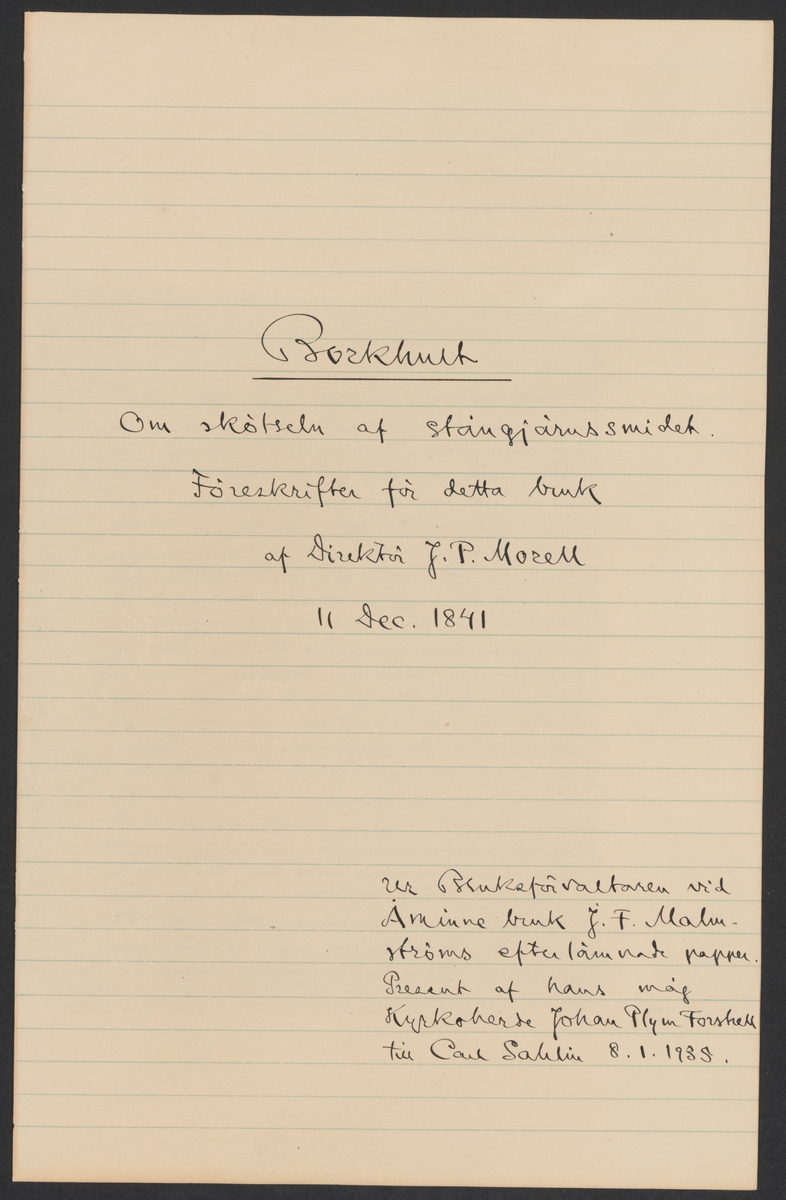 Borkhult
Om skötseln af stångjärnssmidet.
Föreskrifter för detta bruk
af Direktör J. P. Morell
11 Dec. 1841
ur Bruksförvaltaren vid
Åminne bruk J. F. Malm-
ströms efterlämnade papper.
Present af hans måg
Kyrkoherde Johan Plym Forshell
till Carl Sahlin 8.1.1938.